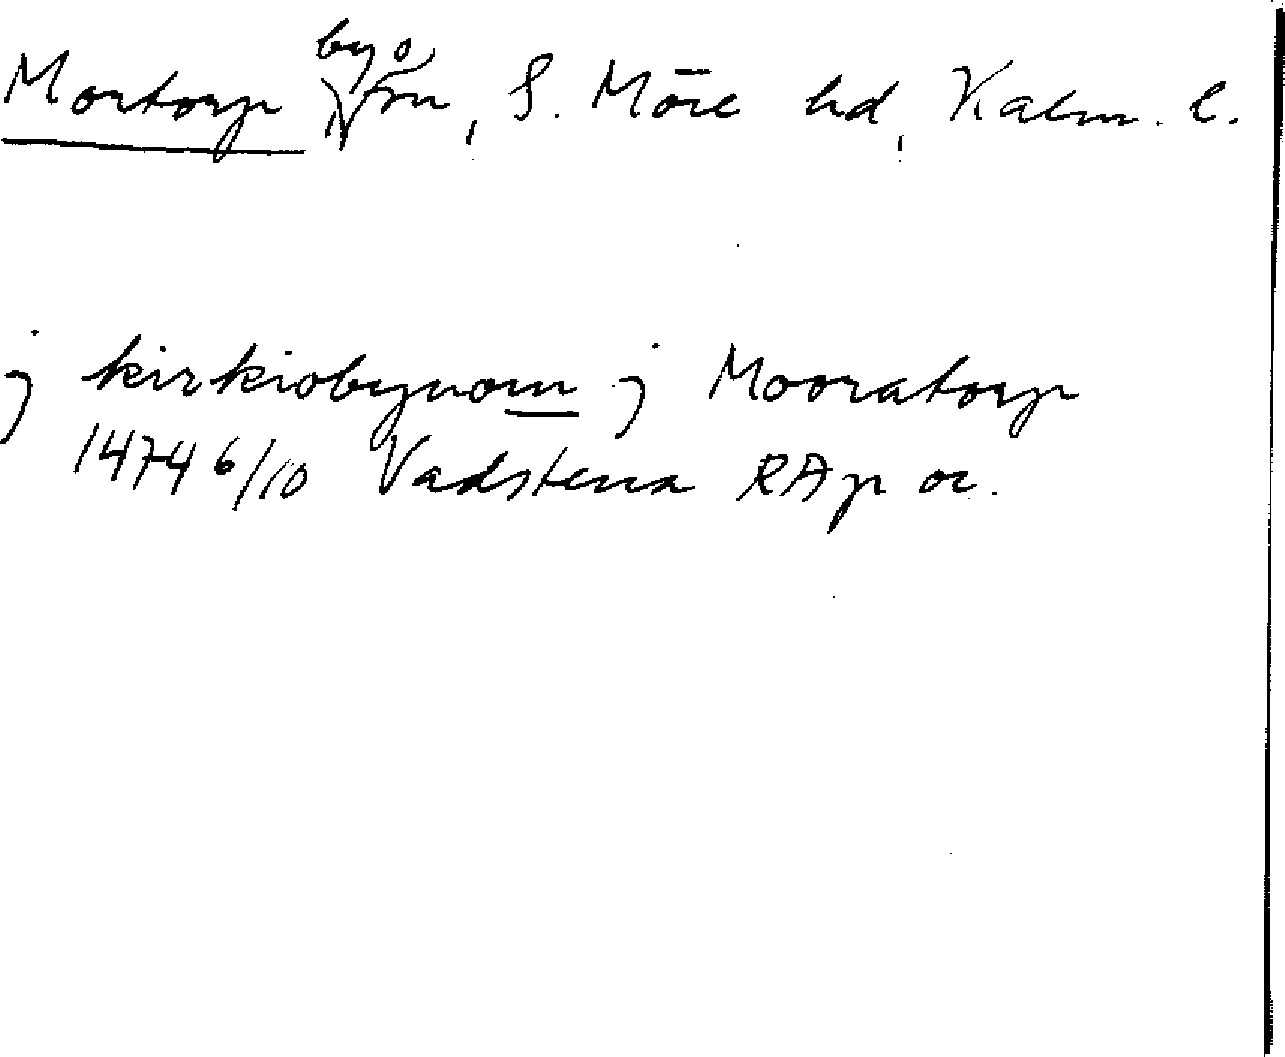 Mortorp by o sn, S. Möre hd, Kalm. l.
j kirkiobynom j Mooratorp
1474 6/10 Vadstena RAp or.